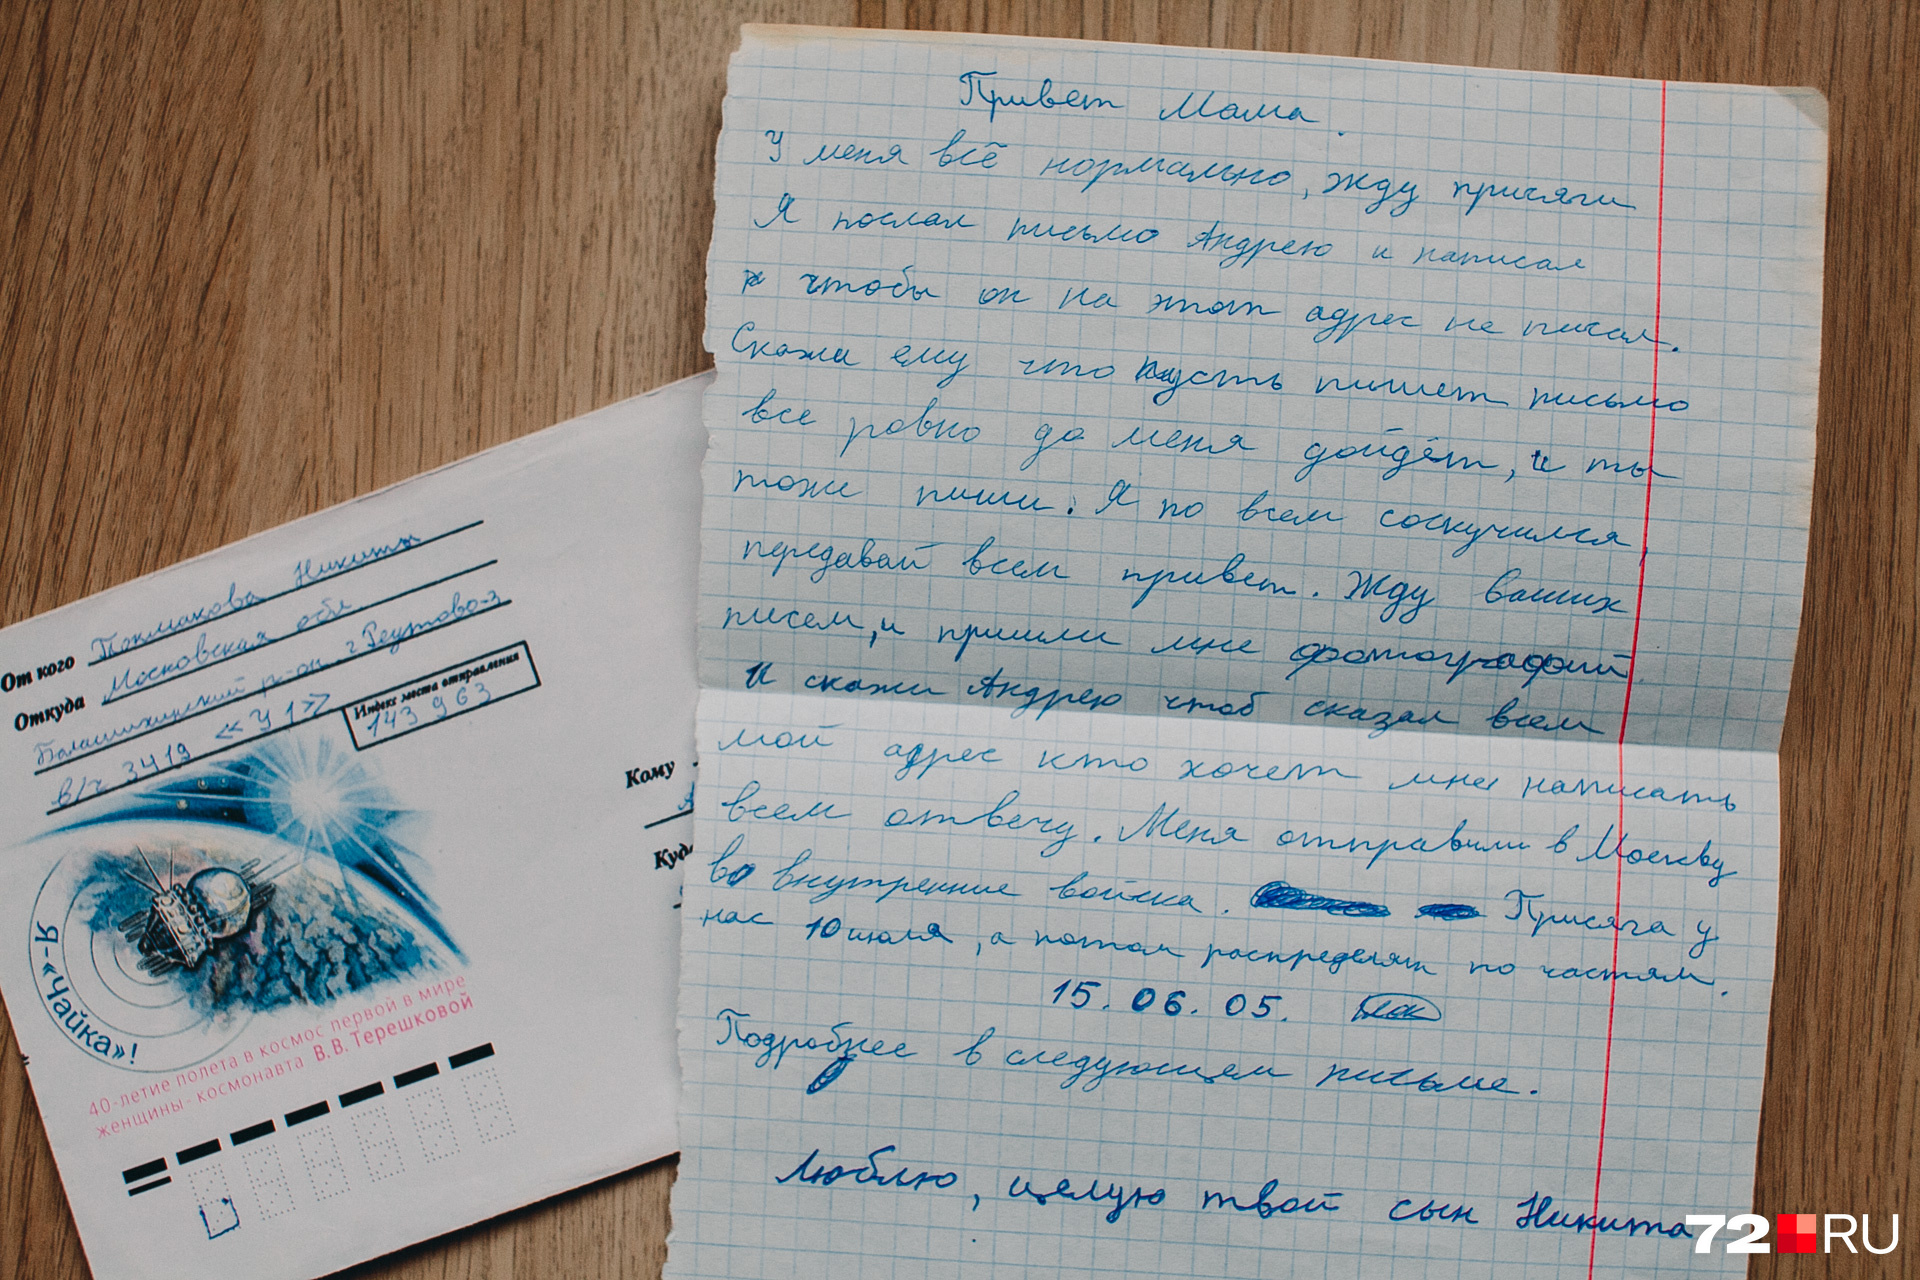 Привет Мама.
У меня всё нормально, жду присяги
Я послал письмо Андрею и написал
чтобы он на этот адрес не писал.
Скажи ему что пусть пишет письмо
все ровно до меня дойдёт, и ты
тоже пиши. Я по всем соскучился,
передавай всем привет. Жду ваших
писем, и пришли мне фотографий.
И скажи Андрею чтоб сказал всем
мой адрес кто хочет мне написать
всем отвечу. Меня отправили в Москву
во внутренние войска. Присяга у
нас 10 июля, а потом распределят по частям.
15.06.05.
Подробнее в следующем письме.
Люблю, целую твой сын Никита
От кого Токмакова Никиты
Откуда Московская обл
Балашихинский р-он г Реутово-3
в/ч 3419 «У1»
Индекс места отправления
143963
Кому
А
Куда
Я-«Чайка»!
40-летие полета в космос первой в мире
женщины-космонавта В.В.Терешковой
72.RU